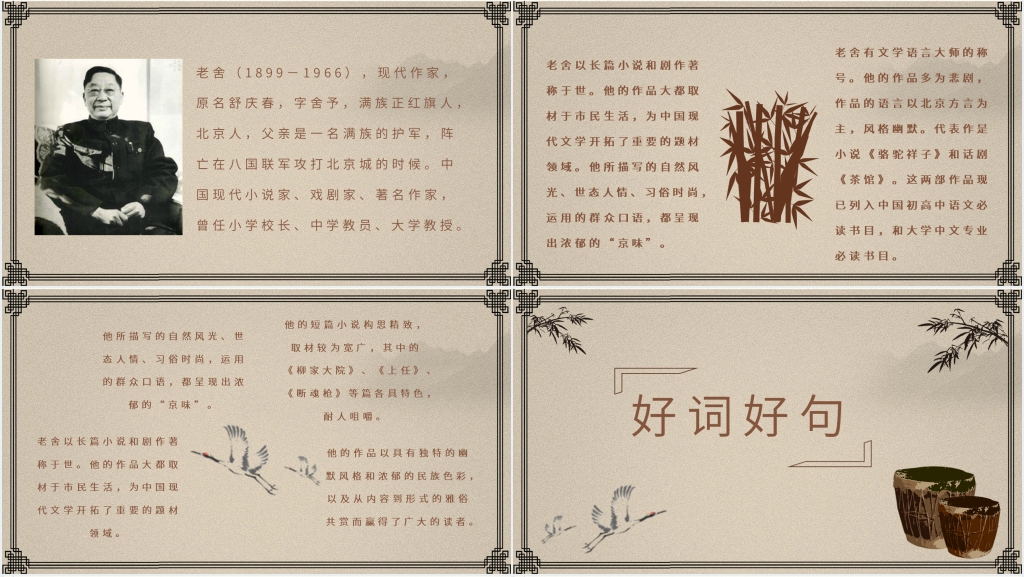 老舍（1899－1966），现代作家，
原名舒庆春，字舍予，满族正红旗人，
北京人，父亲是一名满族的护军，阵
亡在八国联军攻打北京城的时候。中
国现代小说家、戏剧家、著名作家，
曾任小学校长、中学教员、大学教授。
老舍以长篇小说和剧作著
称于世。他的作品大都取
材于市民生活，为中国现
代文学开拓了重要的题材
领域。他所描写的自然风
光、世态人情、习俗时尚，
运用的群众口语，都呈现
出浓郁的“京味”。
老舍有文学语言大师的称
号。他的作品多为悲剧，
作品的语言以北京方言为
主，风格幽默。代表作是
小说《骆驼祥子》和话剧
《茶馆》。这两部作品现
已列入中国初高中语文必
读书目，和大学中文专业
必读书目。
他所描写的自然风光、世
态人情、习俗时尚，运用
的群众口语，都呈现出浓
郁的“京味”。
他的短篇小说构思精致，
取材较为宽广，其中的
《柳家大院》、《上任》、
《断魂枪》等篇各具特色，
耐人咀嚼。
老舍以长篇小说和剧作著
称于世。他的作品大都取
材于市民生活，为中国现
代文学开拓了重要的题材
领域。
他的作品以具有独特的幽
默风格和浓郁的民族色彩，
以及从内容到形式的雅俗
共赏而赢得了广大的读者。
好词好句